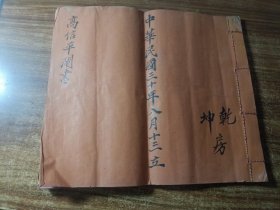 乾
坤房
中華民國三十年八月十三立
高信平閤書